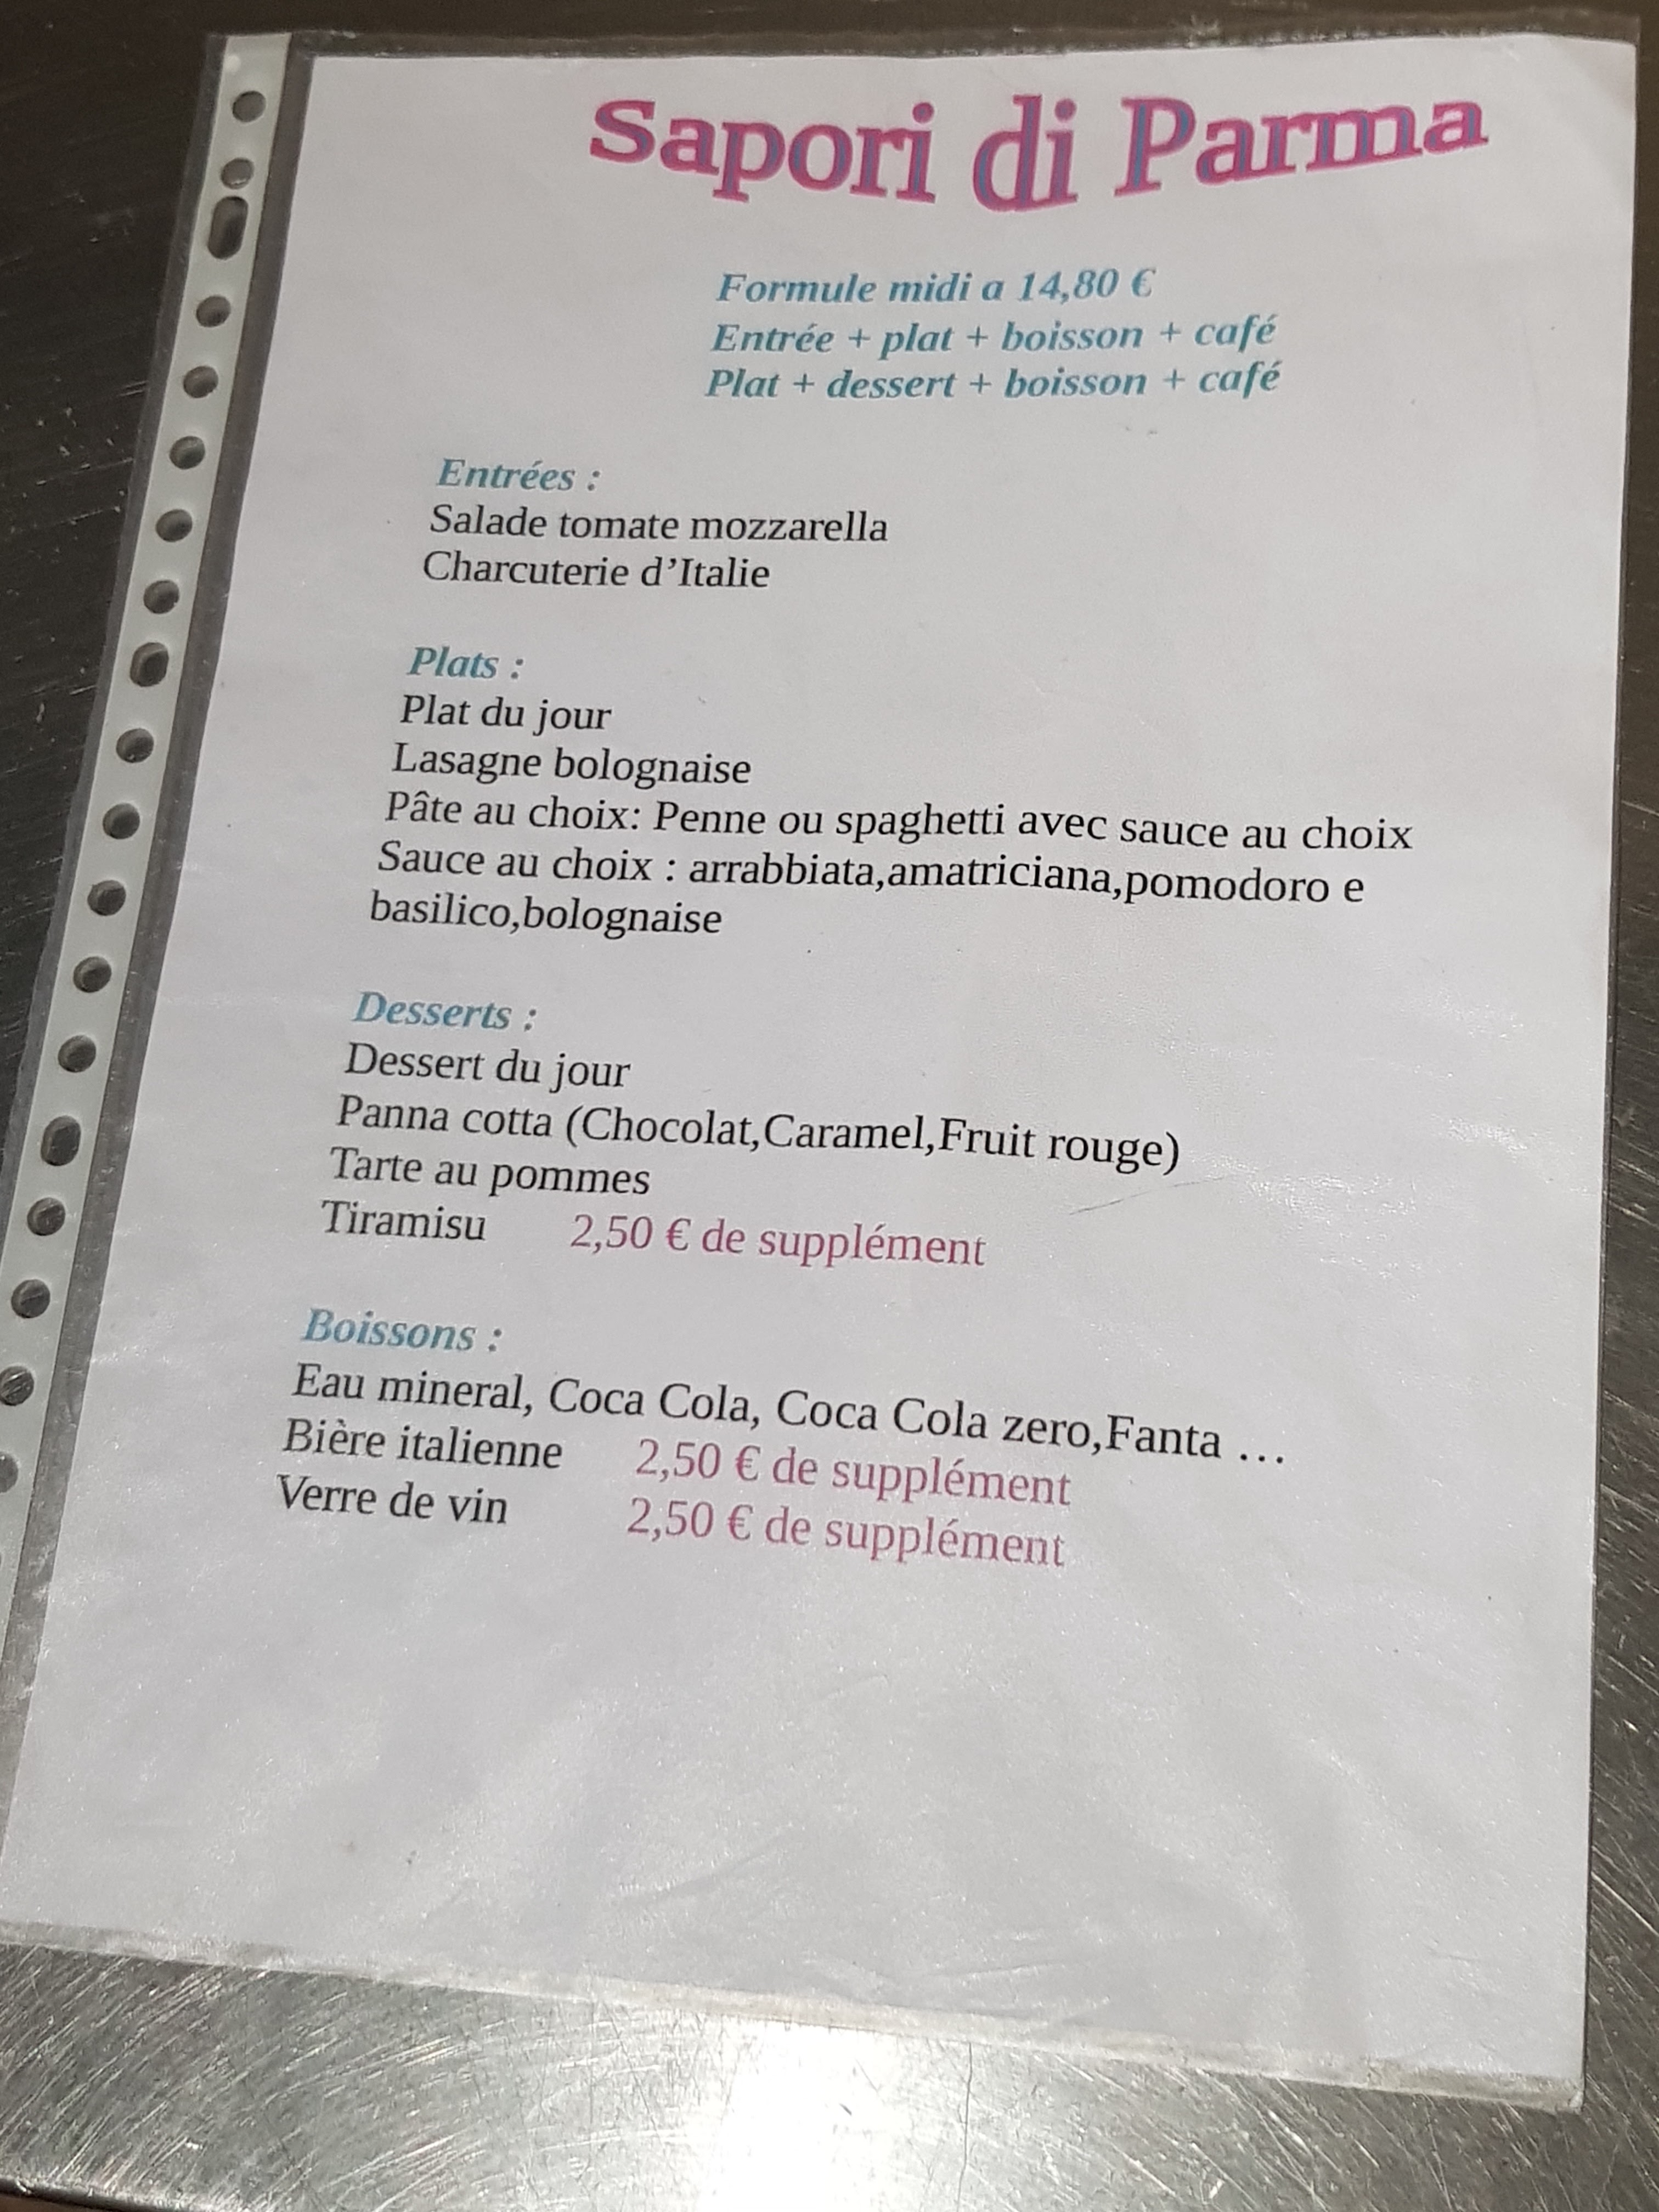 Sapori di Parma
Formule midi a 14,80 €
Entrée + plat + boisson + café
Plat + dessert + boisson + café
Entrées :
Salade tomate mozzarella
Charcuterie d’Italie
Plats :
Plat du jour
Lasagne bolognaise
Pâte au choix: Penne ou spaghetti avec sauce au choix
Sauce au choix : arrabbiata,amatriciana,pomodoro e
basilico,bolognaise
Desserts :
Dessert du jour
Panna cotta (Chocolat,Caramel,Fruit rouge)
Tarte au pommes
Tiramisu 2,50 € de supplément
Boissons :
Eau mineral, Coca Cola, Coca Cola zero,Fanta ...
Bière italienne 2,50 € de supplément
Verre de vin 2,50 € de supplément